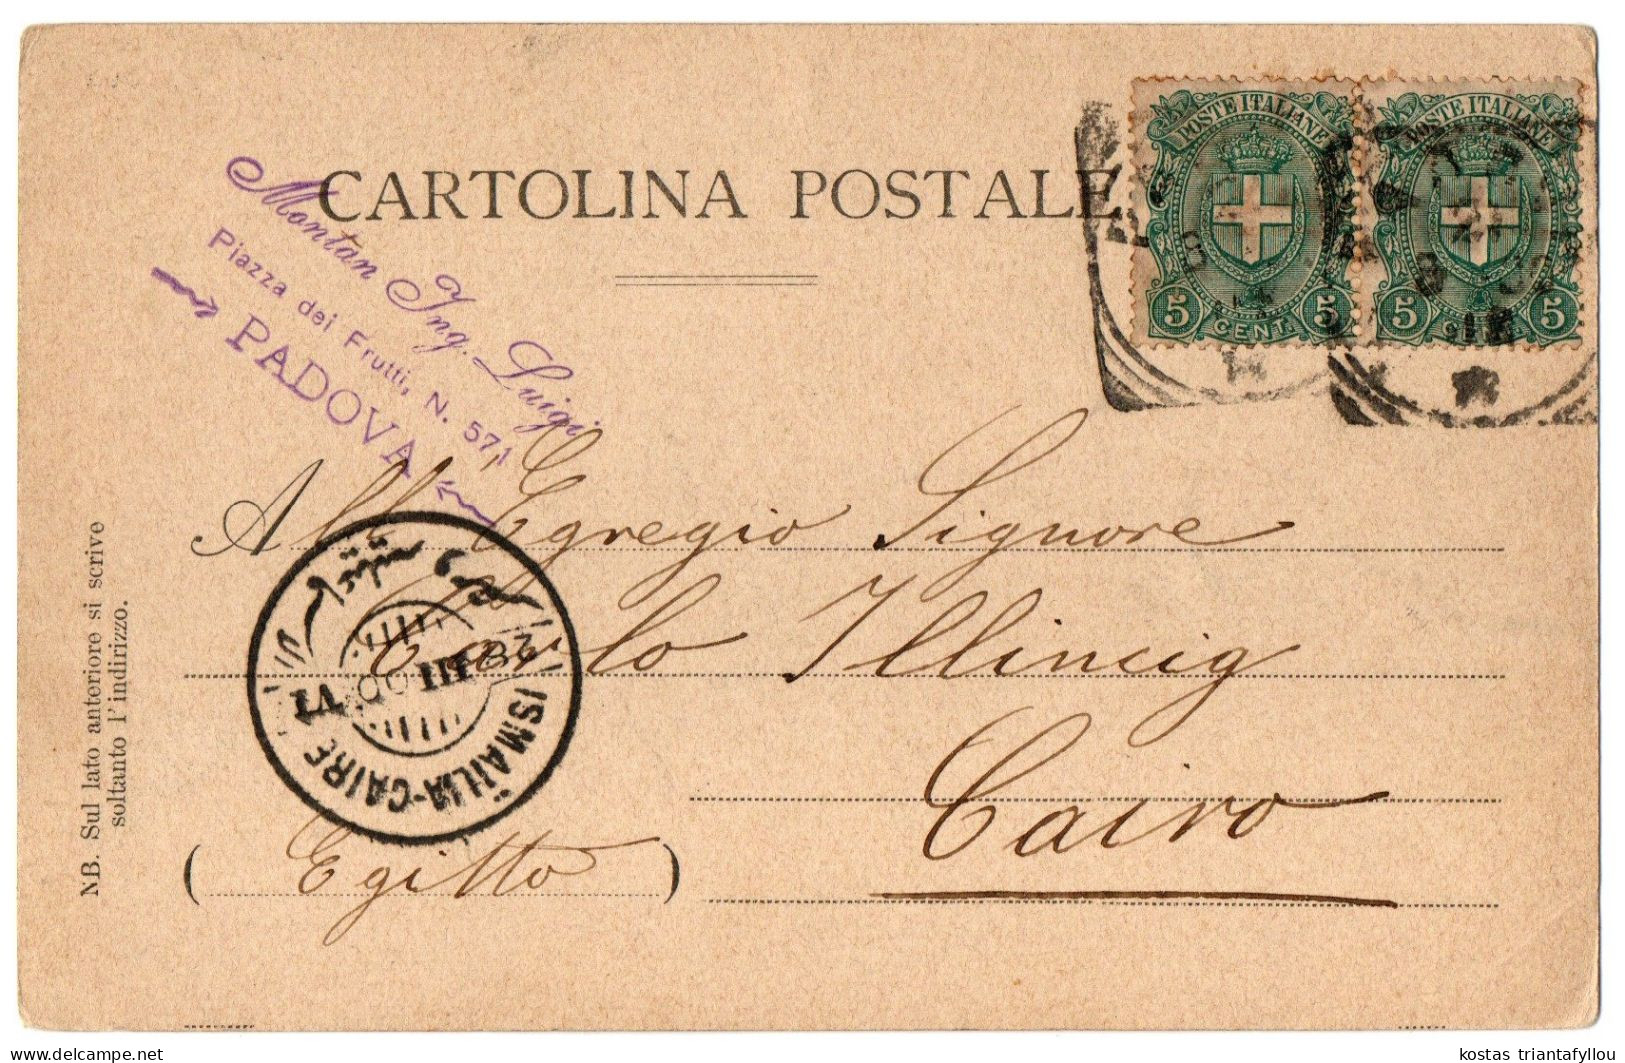 CARTOLINA POSTALE
POSTE ITALIANE
5 CENT. 5
POSTE ITALIANE
5 5
Montan Ing. Luigi
Piazza dei Frutti, N. 571
PADOVA
All' Egregio Signore
Carlo Illincig
Cairo
( Egitto )
ISMAÏLIA-CAIRE
28 III 00
NB. Sul lato anteriore si scrive
soltanto l'indirizzo.
delcampe.net
kostas triantafyllou